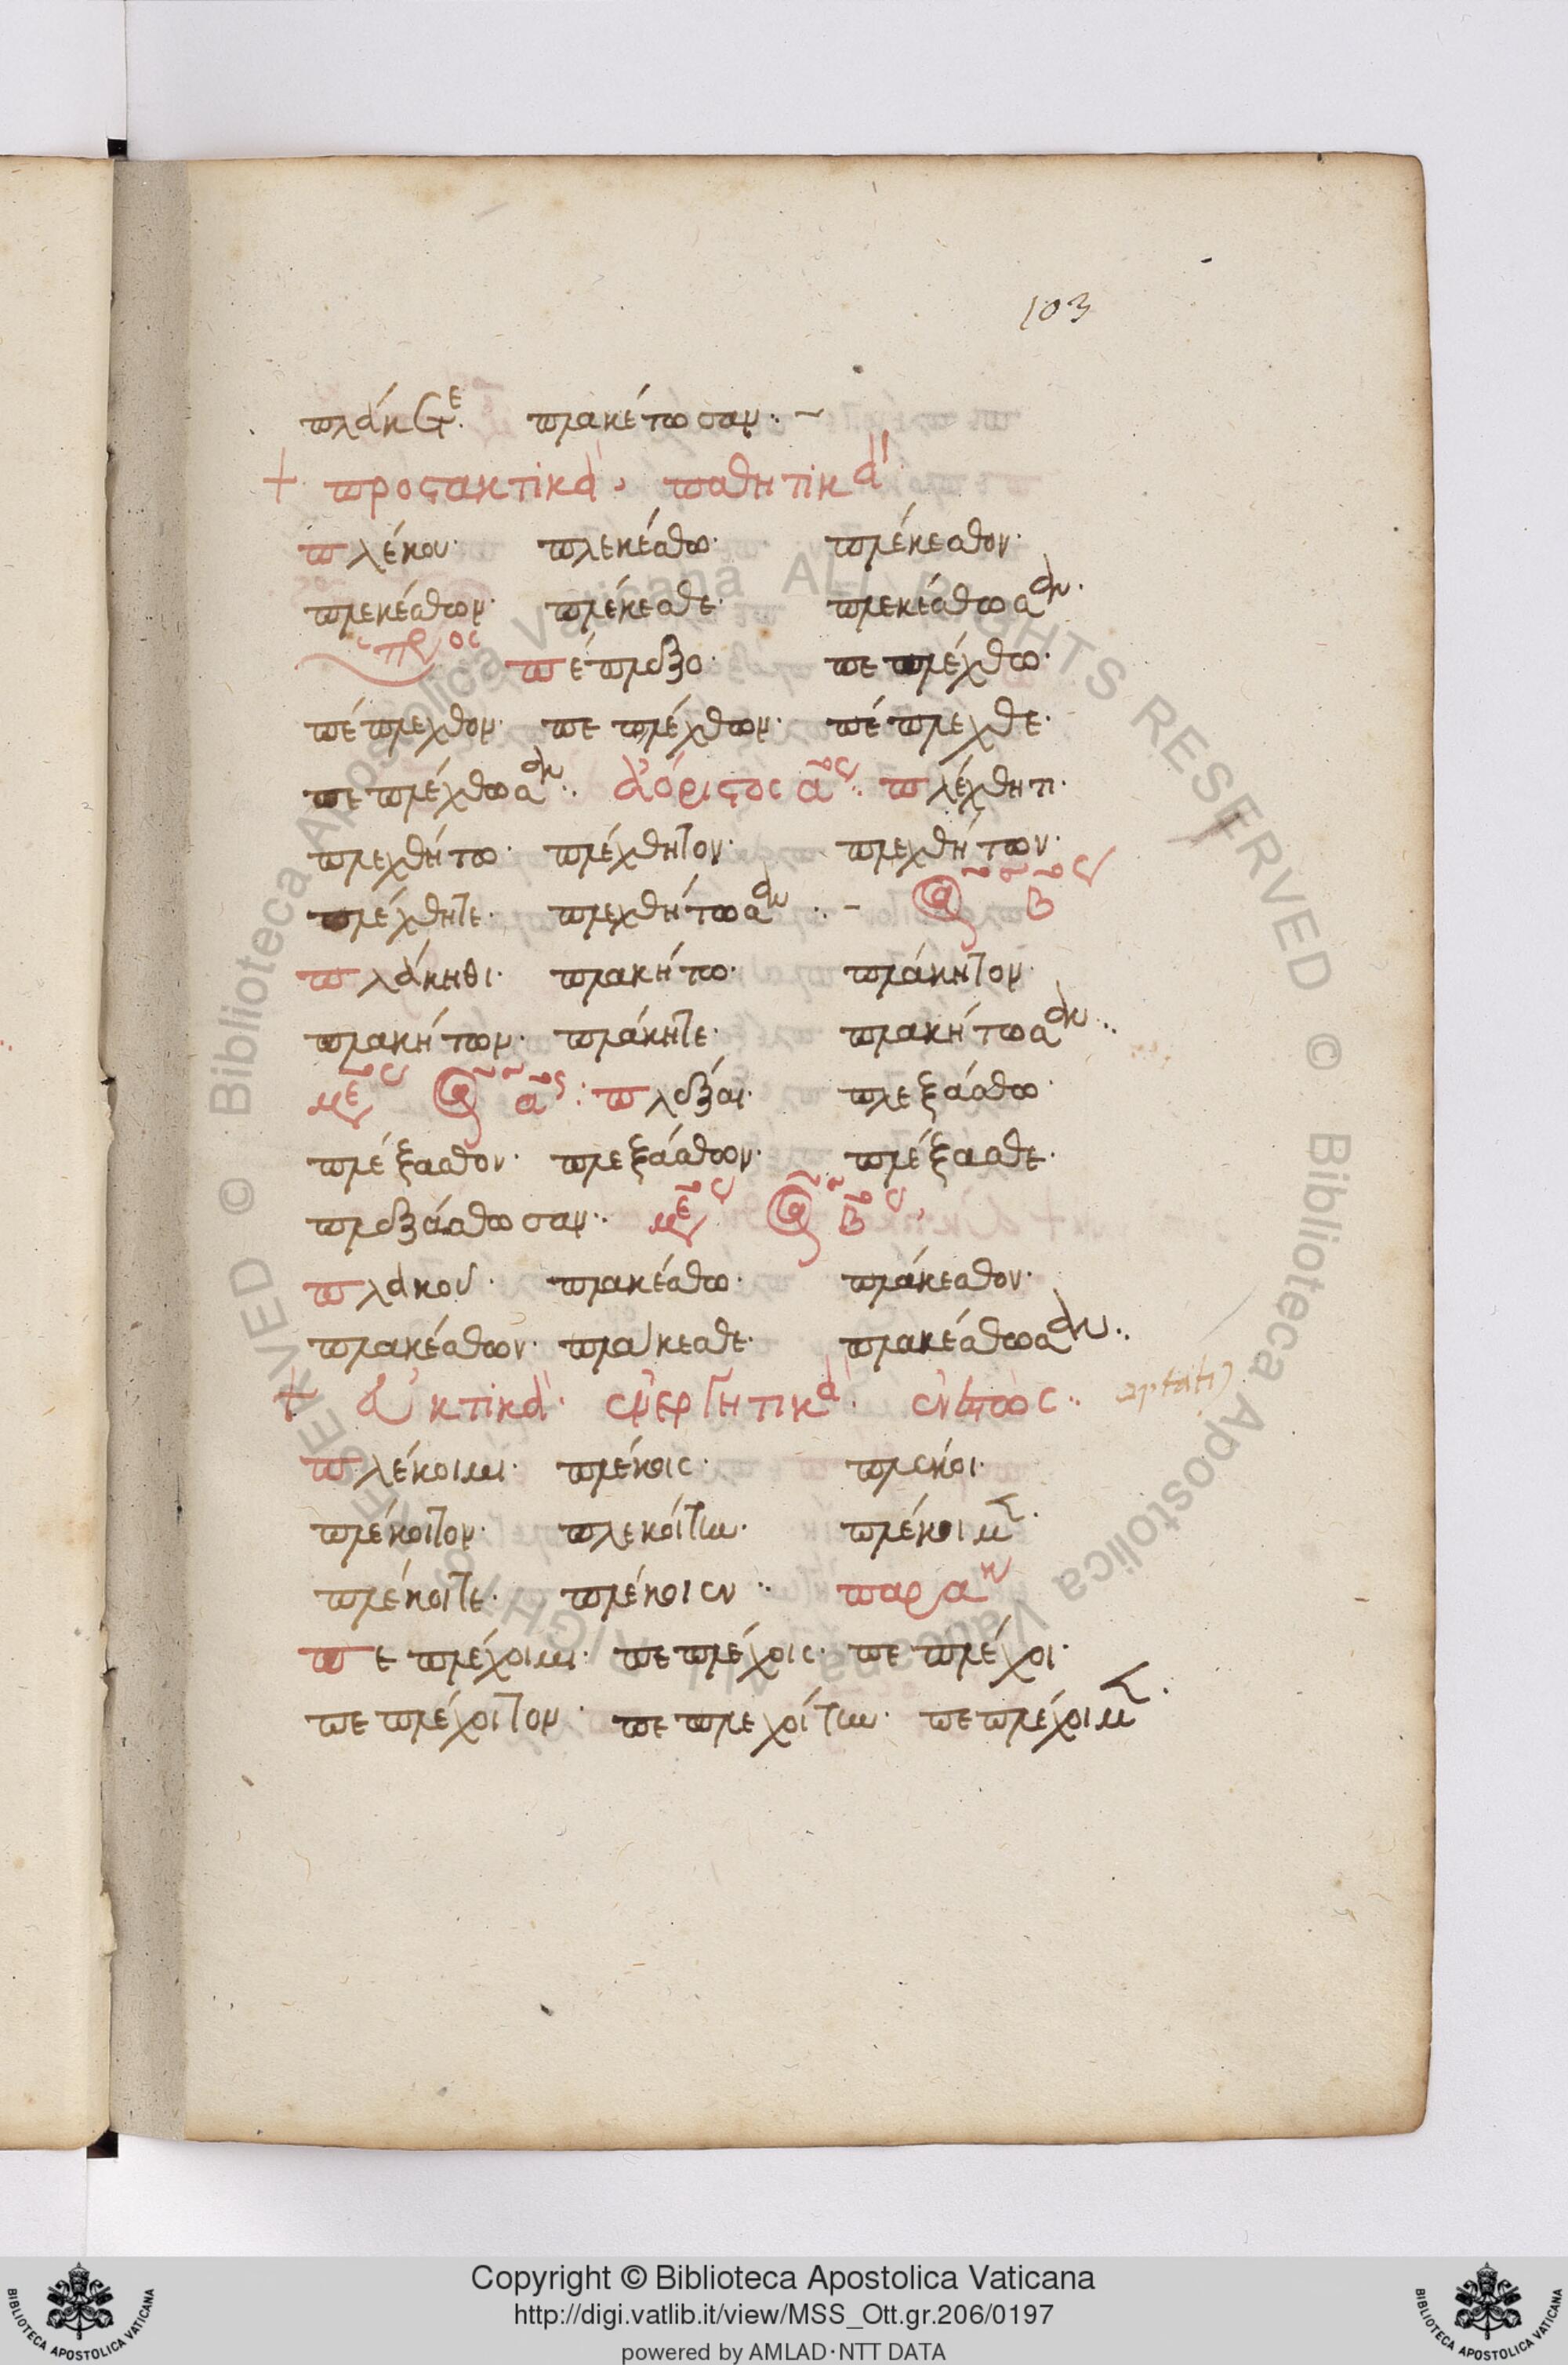 103
πλάκετε· πλακέτωσαν·
+ προστακτικὰ, παθητικά
πλέκου· πλεκέσθω· πλέκεσθον·
πλεκέσθων· πλέκεσθε· πλεκέσθωσαν·
πέπλεξο· πεπλέχθω·
πέπλεχθον· πεπλέχθων· πέπλεχθε·
πεπλέχθωσαν: ἀόριστος αος: πλέχθητι·
πλεχθήτω· πλέχθητον· πλεχθήτων·
πλέχθητε· πλεχθήτωσαν: - β
πλάκηθι· πλακήτω· πλάκητον·
πλακήτων· πλάκητε· πλακήτωσαν:
αος: πλέξαι· πλεξάσθω·
πλέξασθον· πλεξάσθων· πλέξασθε·
πλεξάσθωσαν: βος
πλακοῦ· πλακέσθω· πλάκεσθον·
πλακέσθων· πλάκεσθε· πλακέσθωσαν:
+ εὐκτικὰ· ἐνεργητικά· ἐνεστώς:
πλέκοιμι· πλέκοις· πλέκοι·
πλέκοιτον· πλεκοίτην· πλέκοιμεν·
πλέκοιτε· πλέκοιεν: παρακ
πεπλέχοιμι· πεπλέχοις· πεπλέχοι·
πεπλέχοιτον· πεπλεχοίτην· πεπλέχοιμεν·
© Biblioteca Apostolica Vaticana ALL RIGHTS RESERVED © Biblioteca Apostolica Vaticana ALL RIGHTS RESERVED
Copyright © Biblioteca Apostolica Vaticana
http://digi.vatlib.it/view/MSS_Ott.gr.206/0197
powered by AMLAD·NTT DATA
BIBLIOTECA APOSTOLICA VATICANA
BIBLIOTECA APOSTOLICA VATICANA